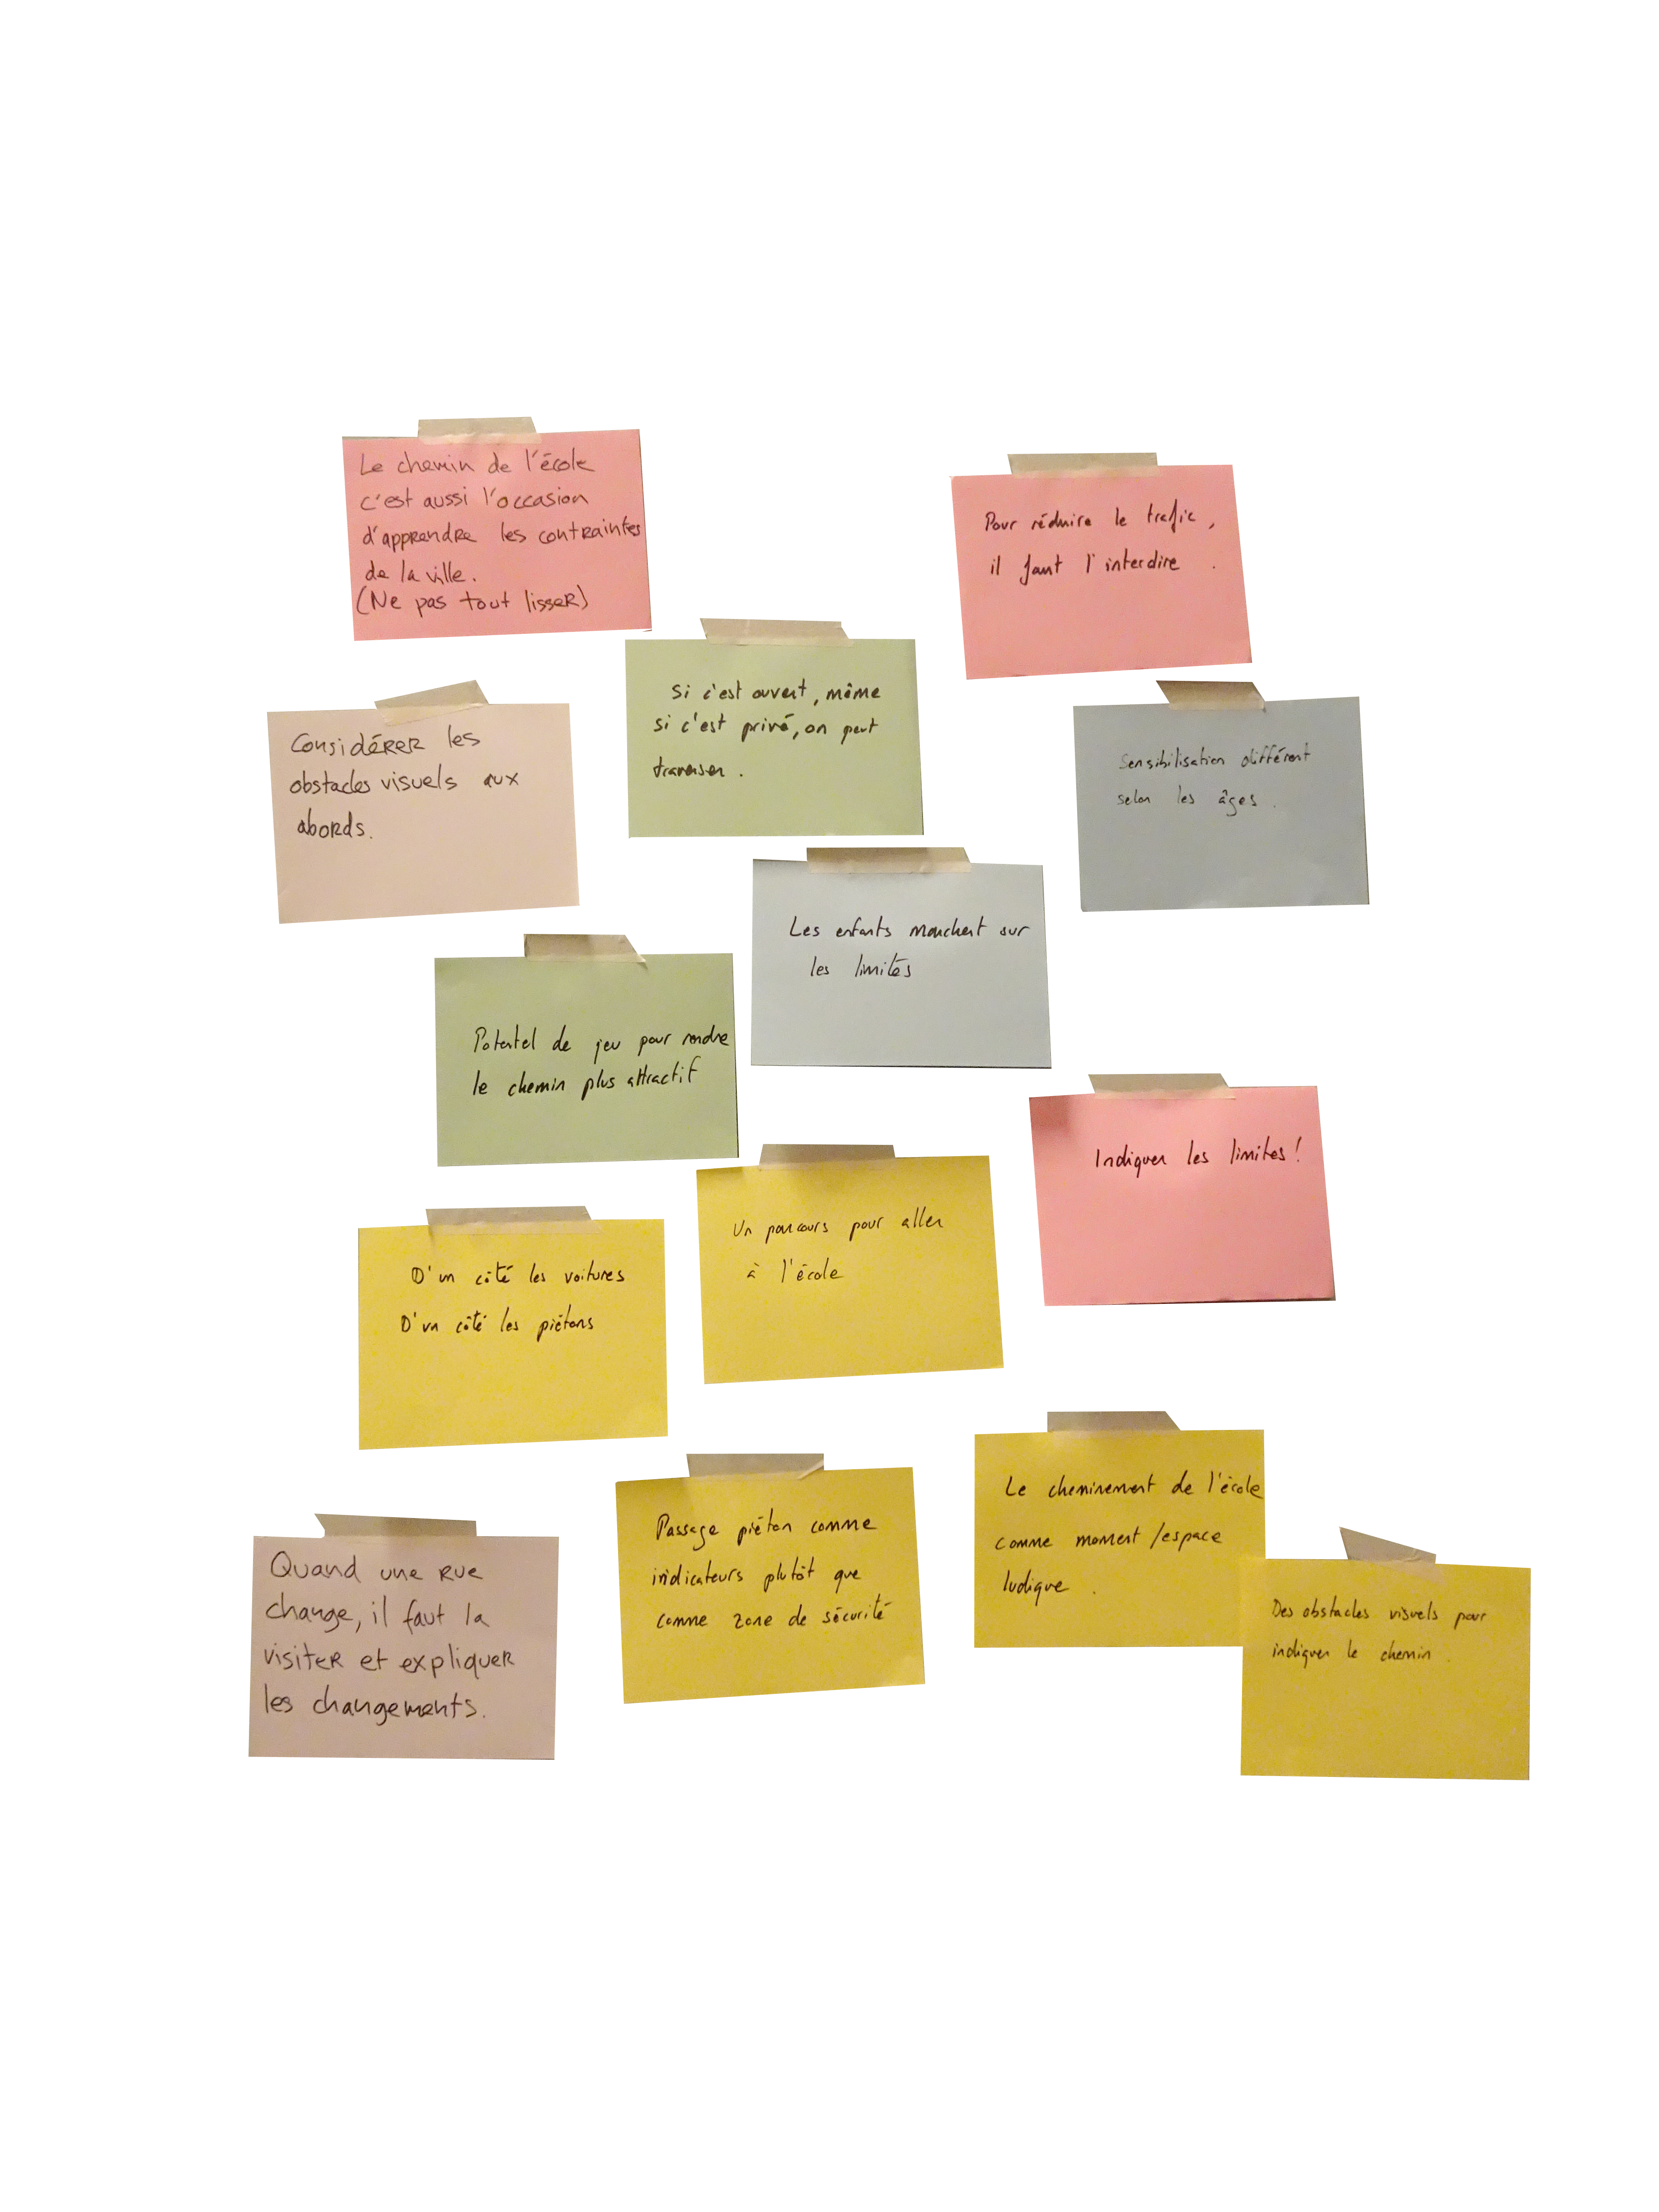 Le chemin de l'école
c'est aussi l'occasion
d'apprendre les contraintes
de la ville.
(Ne pas tout lisser)
Pour réduire le trafic,
il faut l'interdire.
Si c'est ouvert, même
si c'est privé, on peut
traverser.
Considérer les
obstacles visuels aux
abords.
Sensibilisation différent
selon les âges.
Les enfants marchent sur
les limites
Potentel de jeu pour rendre
le chemin plus attractif
Indiquer les limites!
Un parcours pour aller
à l'école
D'un côté les voitures
D'un côté les piétons
Le cheminement de l'école
comme moment/espace
ludique.
Passage piéton comme
indicateurs plutôt que
comme zone de sécurité
Quand une rue
change, il faut la
visiter et expliquer
les changements.
Des obstacles visuels pour
indiquer le chemin.